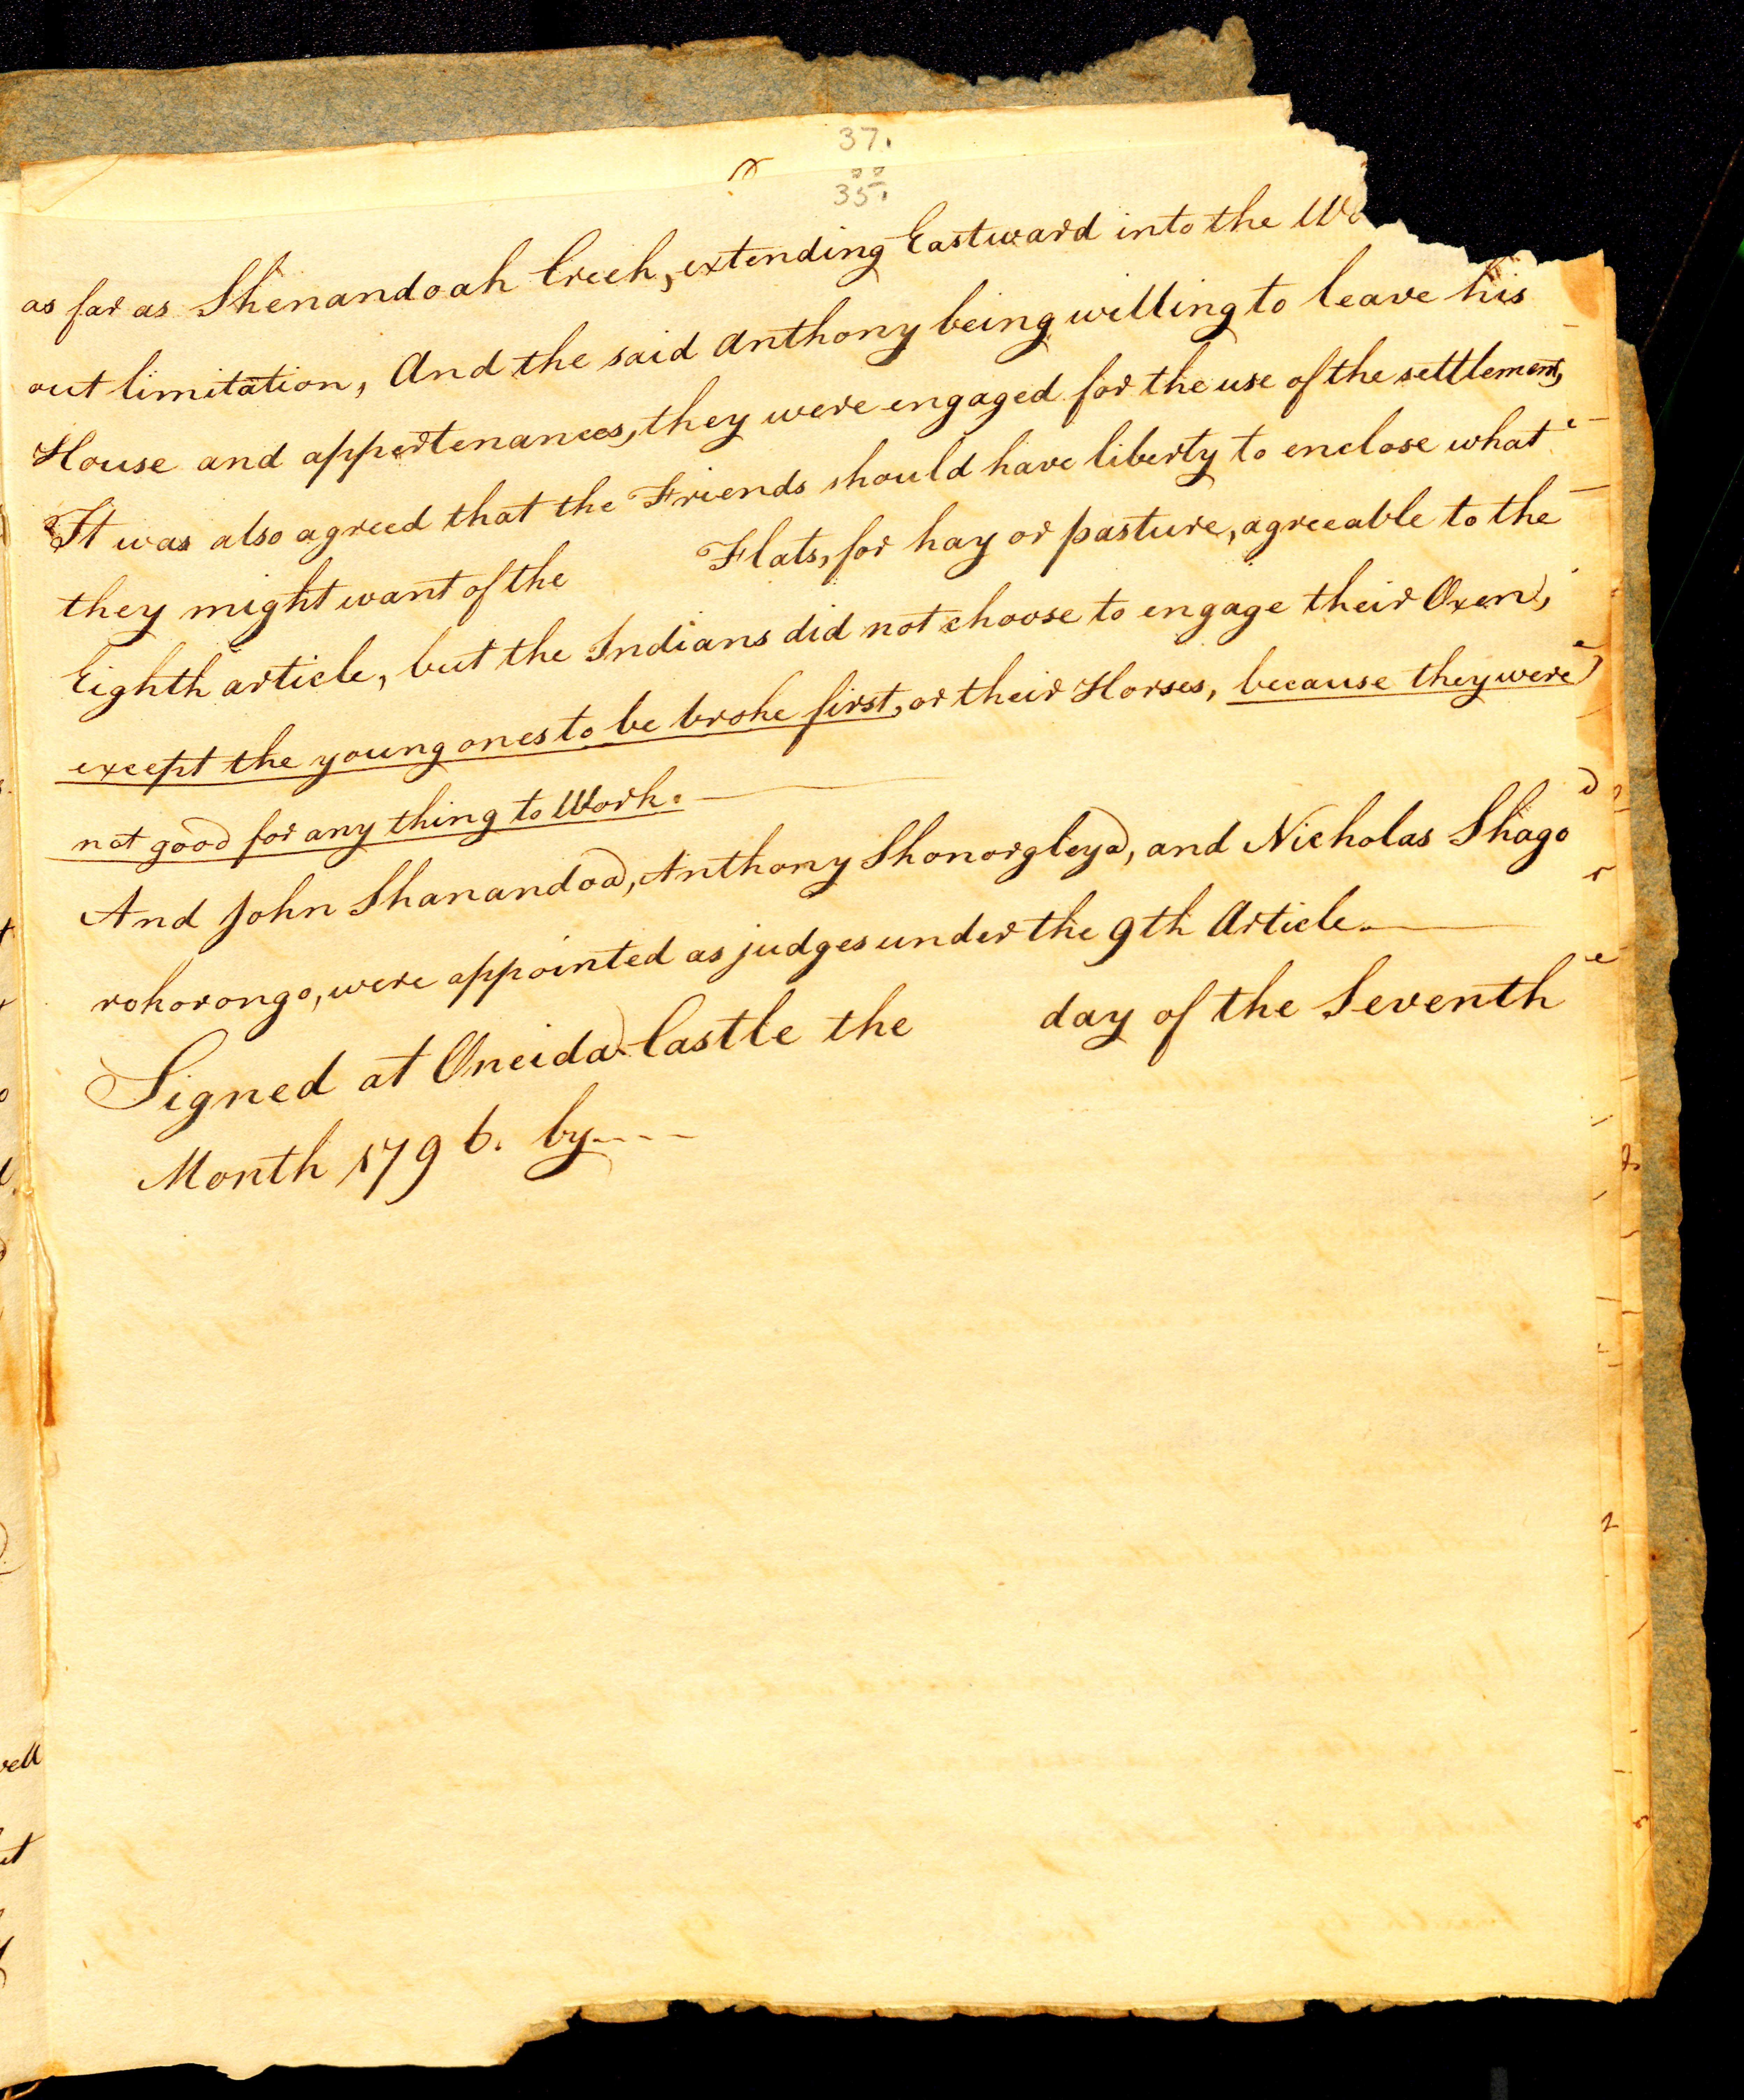 37.
35.
as far as Shenandoah Creek, extending Eastward into the
out limitation, And the said Anthony being willing to leave his
House and appertenances, they were engaged for the use of the settlement,
It was also agreed that the Friends should have liberty to enclose what
they might want of the Flats, for hay or pasture, agreeable to the
Eighth article, but the Indians did not choose to engage their Oxen,
except the young ones to be broke first, or their Horses, because they were
not good for any thing to Work.
And John Shanandoa, Anthony Shonorgleya, and Nicholas Shago
rokorongo, were appointed as judges under the 9th Article.
Signed at Oneida Castle the day of the Seventh
Month 1796. by